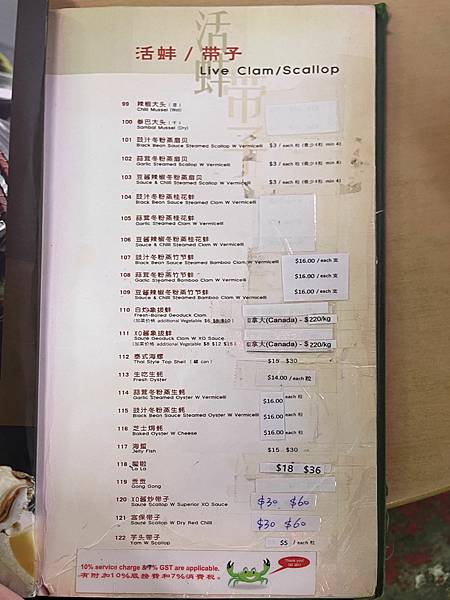 活蚌 / 带子
Live Clam/Scallop
99 辣椒大头 (湿)
Chilli Mussel (Wet)
100 峇巴大头 (干)
Sambal Mussel (Dry)
101 豉汁冬粉蒸扇贝
Black Bean Sauce Steamed Scallop W Vermicelli $3 / each 粒 (最少4粒 min 4)
102 蒜茸冬粉蒸扇贝
Garlic Steamed Scallop W Vermicelli $3 / each 粒 (最少4粒 min 4)
103 豆酱辣椒冬粉蒸扇贝
Sauce & Chilli Steamed Scallop W Vermicelli $3 / each 粒 (最少4粒 min 4)
104 豉汁冬粉蒸桂花蚌
Black Bean Sauce Steamed Clam W Vermicelli
105 蒜茸冬粉蒸桂花蚌
Garlic Steamed Clam W Vermicelli
106 豆酱辣椒冬粉蒸桂花蚌
Sauce & Chilli Steamed Clam W Vermicelli
107 豉汁冬粉蒸竹节蚌
Black Bean Sauce Steamed Bamboo Clam W Vermicelli $16.00 / each 支
108 蒜茸冬粉蒸竹节蚌
Garlic Steamed Bamboo Clam W Vermicelli $16.00 / each 支
109 豆酱辣椒冬粉蒸竹节蚌
Sauce & Chilli Steamed Bamboo Clam W Vermicelli $16.00 / each 支
110 白灼象拔蚌
Fresh-Boiled Geoduck Clam
(加菜价格 additional Vegetable $6 $8 $10) 拿大(Canada) - $220/kg
111 XO酱象拔蚌
Saute Geoduck Clam W XO Sauce
(加菜价格 additional Vegetable $8 $12 $15) 拿大(Canada) - $220/kg
112 泰式海螺
Thai Style Top Shell (罐 can) $15 $30
113 生吃生蚝
Fresh Oyster $14.00 / each 粒
114 蒜茸冬粉蒸生蚝
Garlic Steamed Oyster W Vermicelli $16.00 each 粒
115 豉汁冬粉蒸生蚝
Black Bean Sauce Steamed Oyster W Vermicelli $16.00 each 粒
116 芝士焗蚝
Baked Oyster W Cheese $16.00 each 粒
117 海蜇
Jelly Fish $15 $30
118 啦啦
La La $18 $36
119 贡贡
Gong Gong
120 XO酱炒带子
Saute Scallop W Superior XO Sauce $30 $60
121 宫保带子
Saute Scallop W Dry Red Chilli $30 $60
122 芋头带子
Yam W Scallop $5 / each 粒
10% service charge & 7% GST are applicable.
有附加10%服務費和7%消費税。
Thank you!